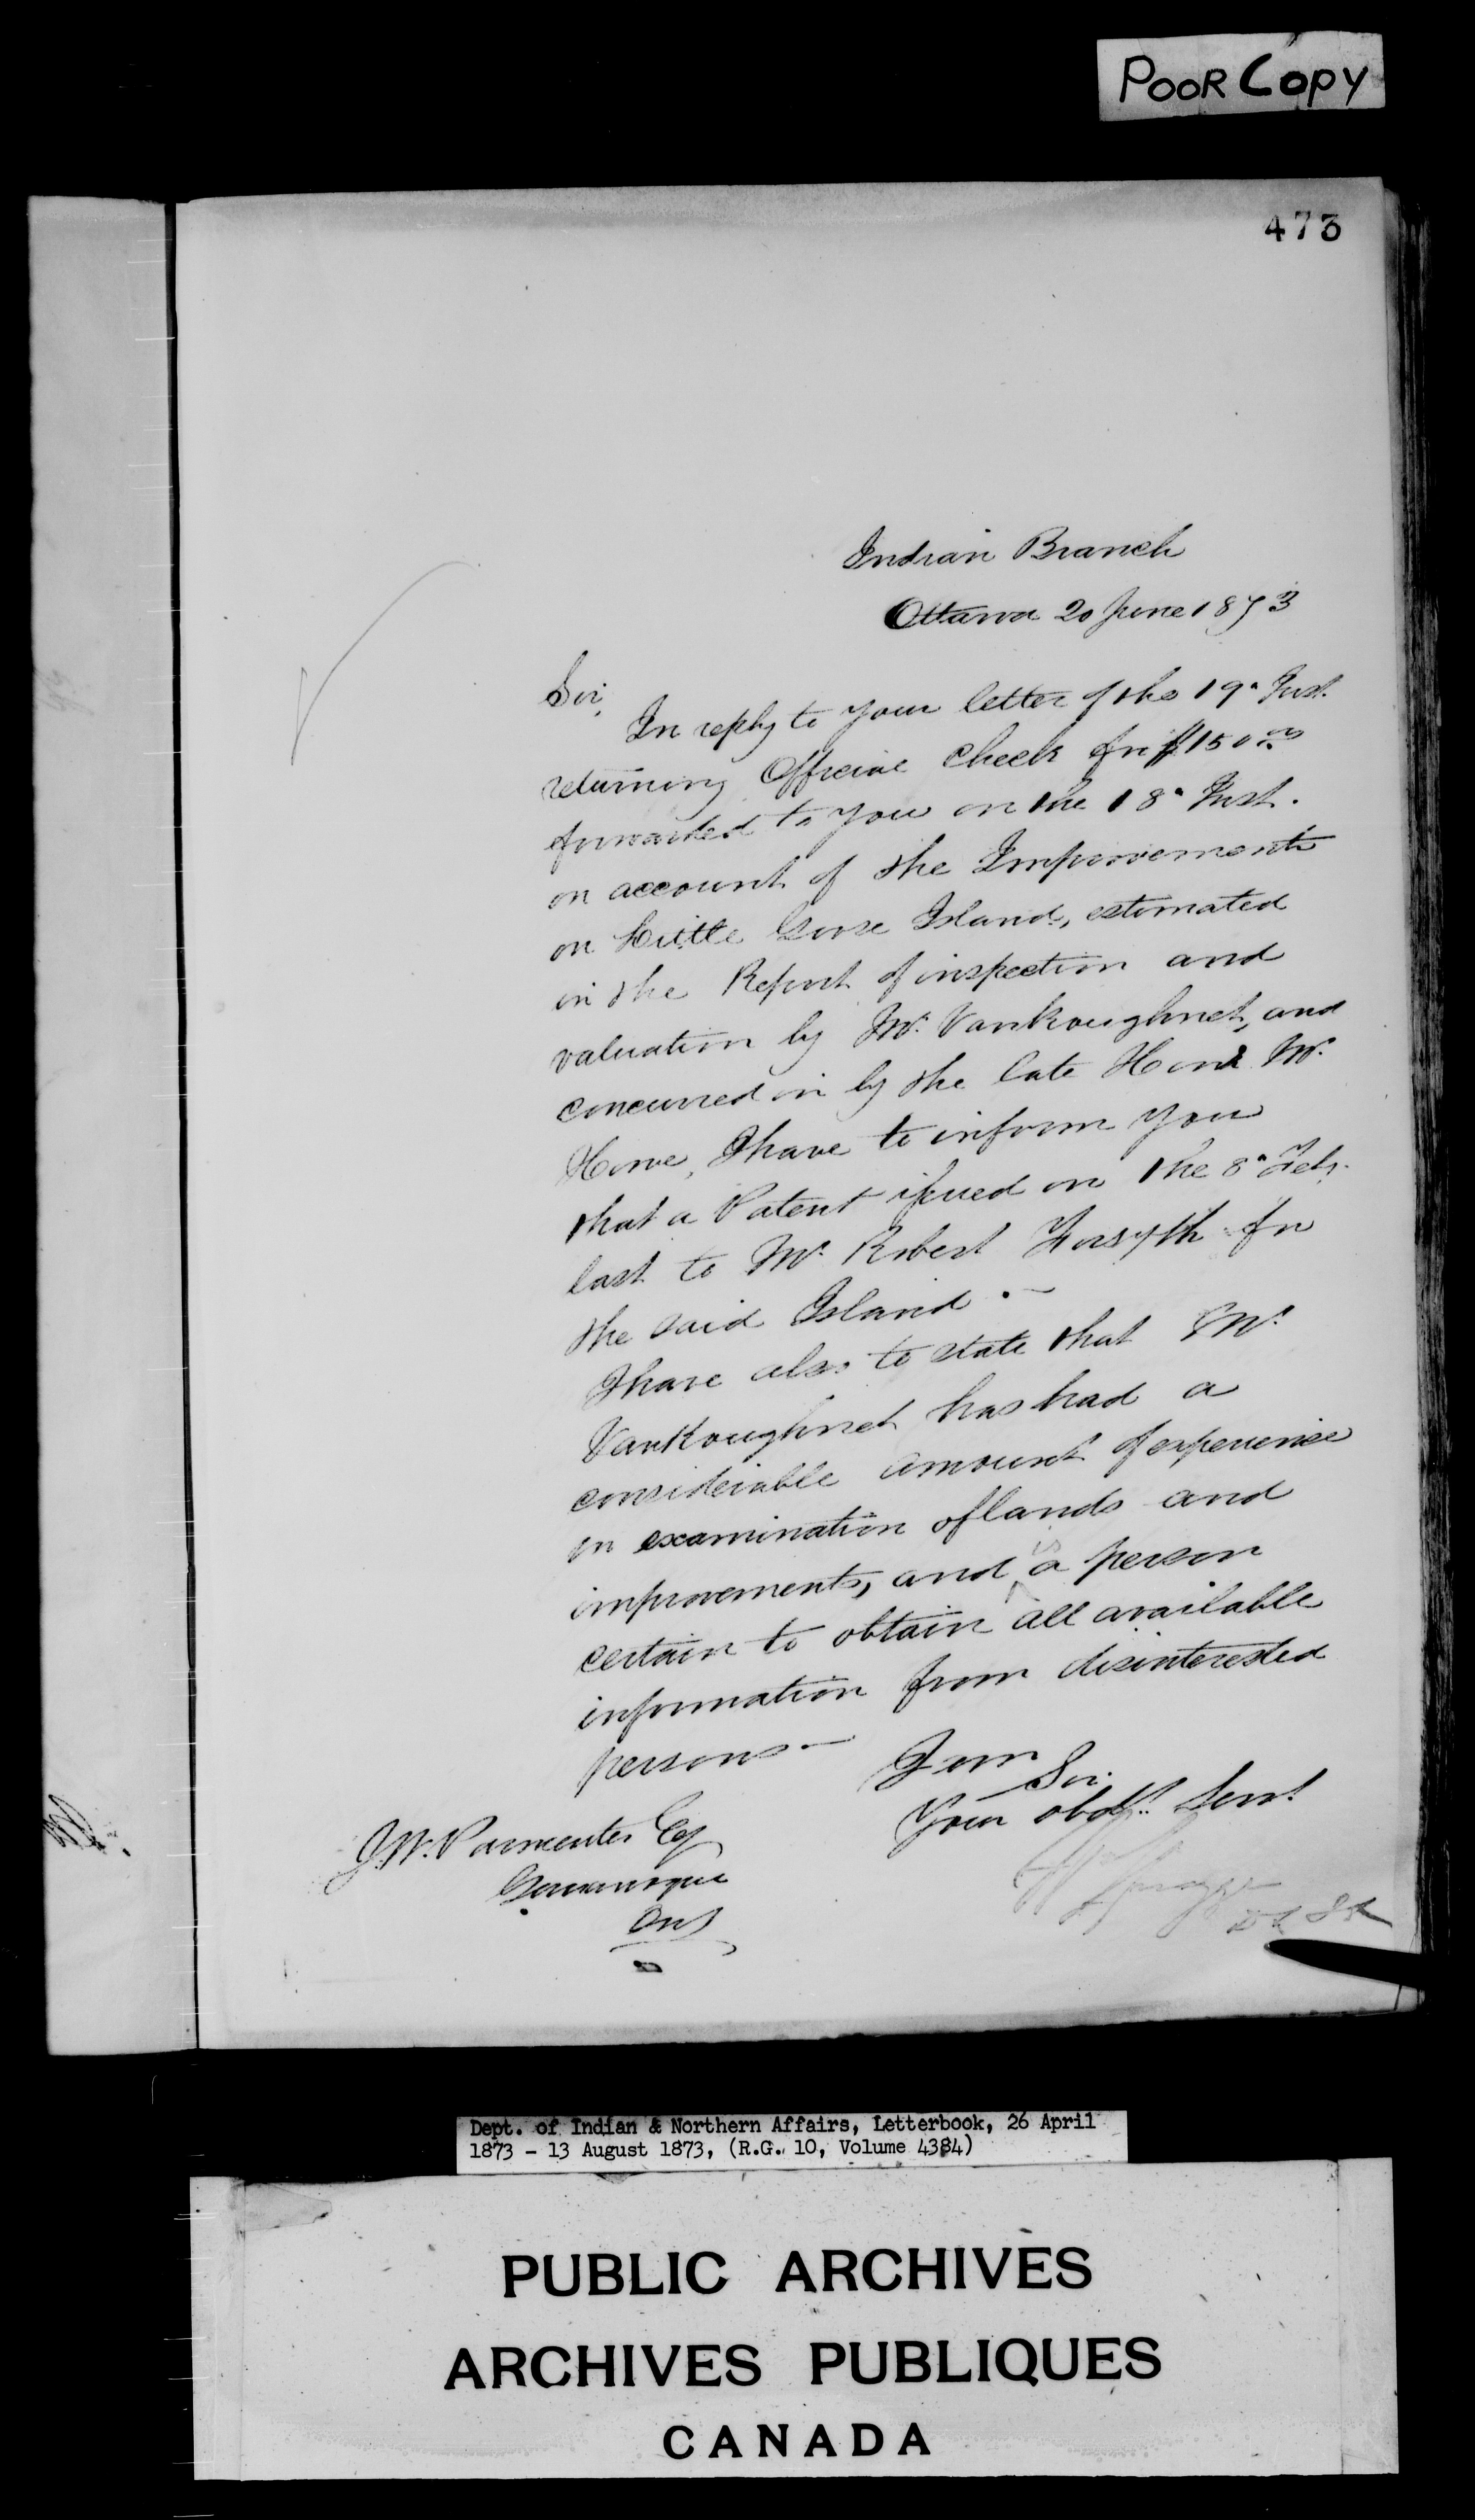 POOR COPY
473
Indian Branch
Ottawa 20 June 1873
Sir,
In reply to your letter of the 19" Inst.
returning Official Check for $150.00
forwarded to you on the 18" Inst.
on account of the Improvements
on Little Goose Island, estimated
in the Report of inspection and
valuation by Mr. VanKoughnet, and
concurred in by the late Honl Mr.
Howe, I have to inform you
that a Patent issued on the 8" Feby.
last to Mr. Robert Forsyth for
the said Island.—
I have also to state that Mr.
VanKoughnet has had a
considerable amount of experience
in examination of lands and
improvements, and is a person
certain to obtain all available
information from disinterested
persons—
I am Sir.
Your obdt. Servt
J. W. Parmenter Esq
Gananoque
Ont
Spragge
Dept. of Indian & Northern Affairs, Letterbook, 26 April
1873 - 13 August 1873, (R.G. 10, Volume 4384)
PUBLIC ARCHIVES
ARCHIVES PUBLIQUES
CANADA